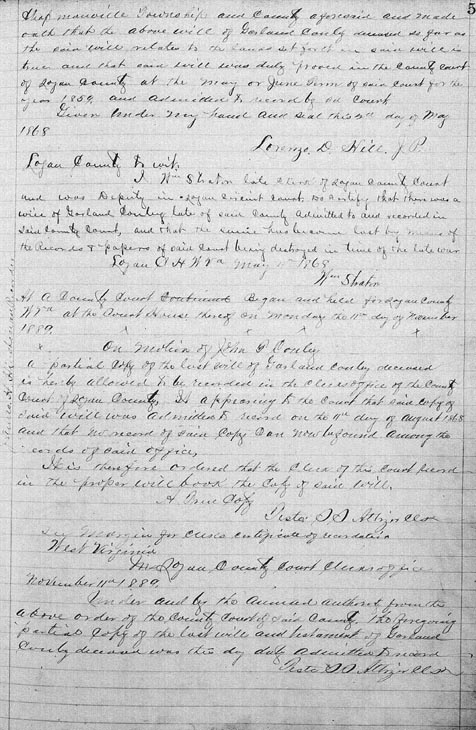 5
Chapmanville Township and County aforesaid and made
oath that the above will of Garland Conley deceased so far as
the said will relates to the lands set forth in said will is
true and that said will was duly proved in the County Court
of Logan County at the May or June Term of said Court for the
year 1859, and admitted to record by sd Court
Given under my hand and seal this day of May
1868
Lorenzo D. Hill J.P.
Logan County to wit,
I Wm Straton late Clerk of Logan County Court
and was Deputy in Logan Circuit Court. Do Certify that there was a
will of Garland Conley late of said County admitted to and recorded in
said County Court, and that the same has become lost by means of
the Records & papers of said Court being destroyed in time of the late war
Logan C H W Va May 1868
Wm Straton
At a County Court Continued Began and held for Logan County
W Va at the Court House thereof on Monday the 11th day of November
1889
On Motion of John P Conley
a partial copy of the last will of Garland Conley deceased
is hereby allowed to be recorded in the Clerks office of the County
Court of Logan County, it appearing to the Court that said copy of
said will was admitted to record on the 11th day of August 1868
and that no record of said Copy can now be found among the
records of said office,
It is therefore ordered that the Clerk of this Court record
in the proper will book the copy of said will,
A True Copy
Teste
See Margin for Clerks certificate of recordation
West Virginia
In Logan County Court Clerks office
November 11th 1889
Under and by the authority from the
above order of the County Court of said County, the foregoing
partial copy of the last will and testament of Garland
Conley deceased was this day duly admitted to record
Teste